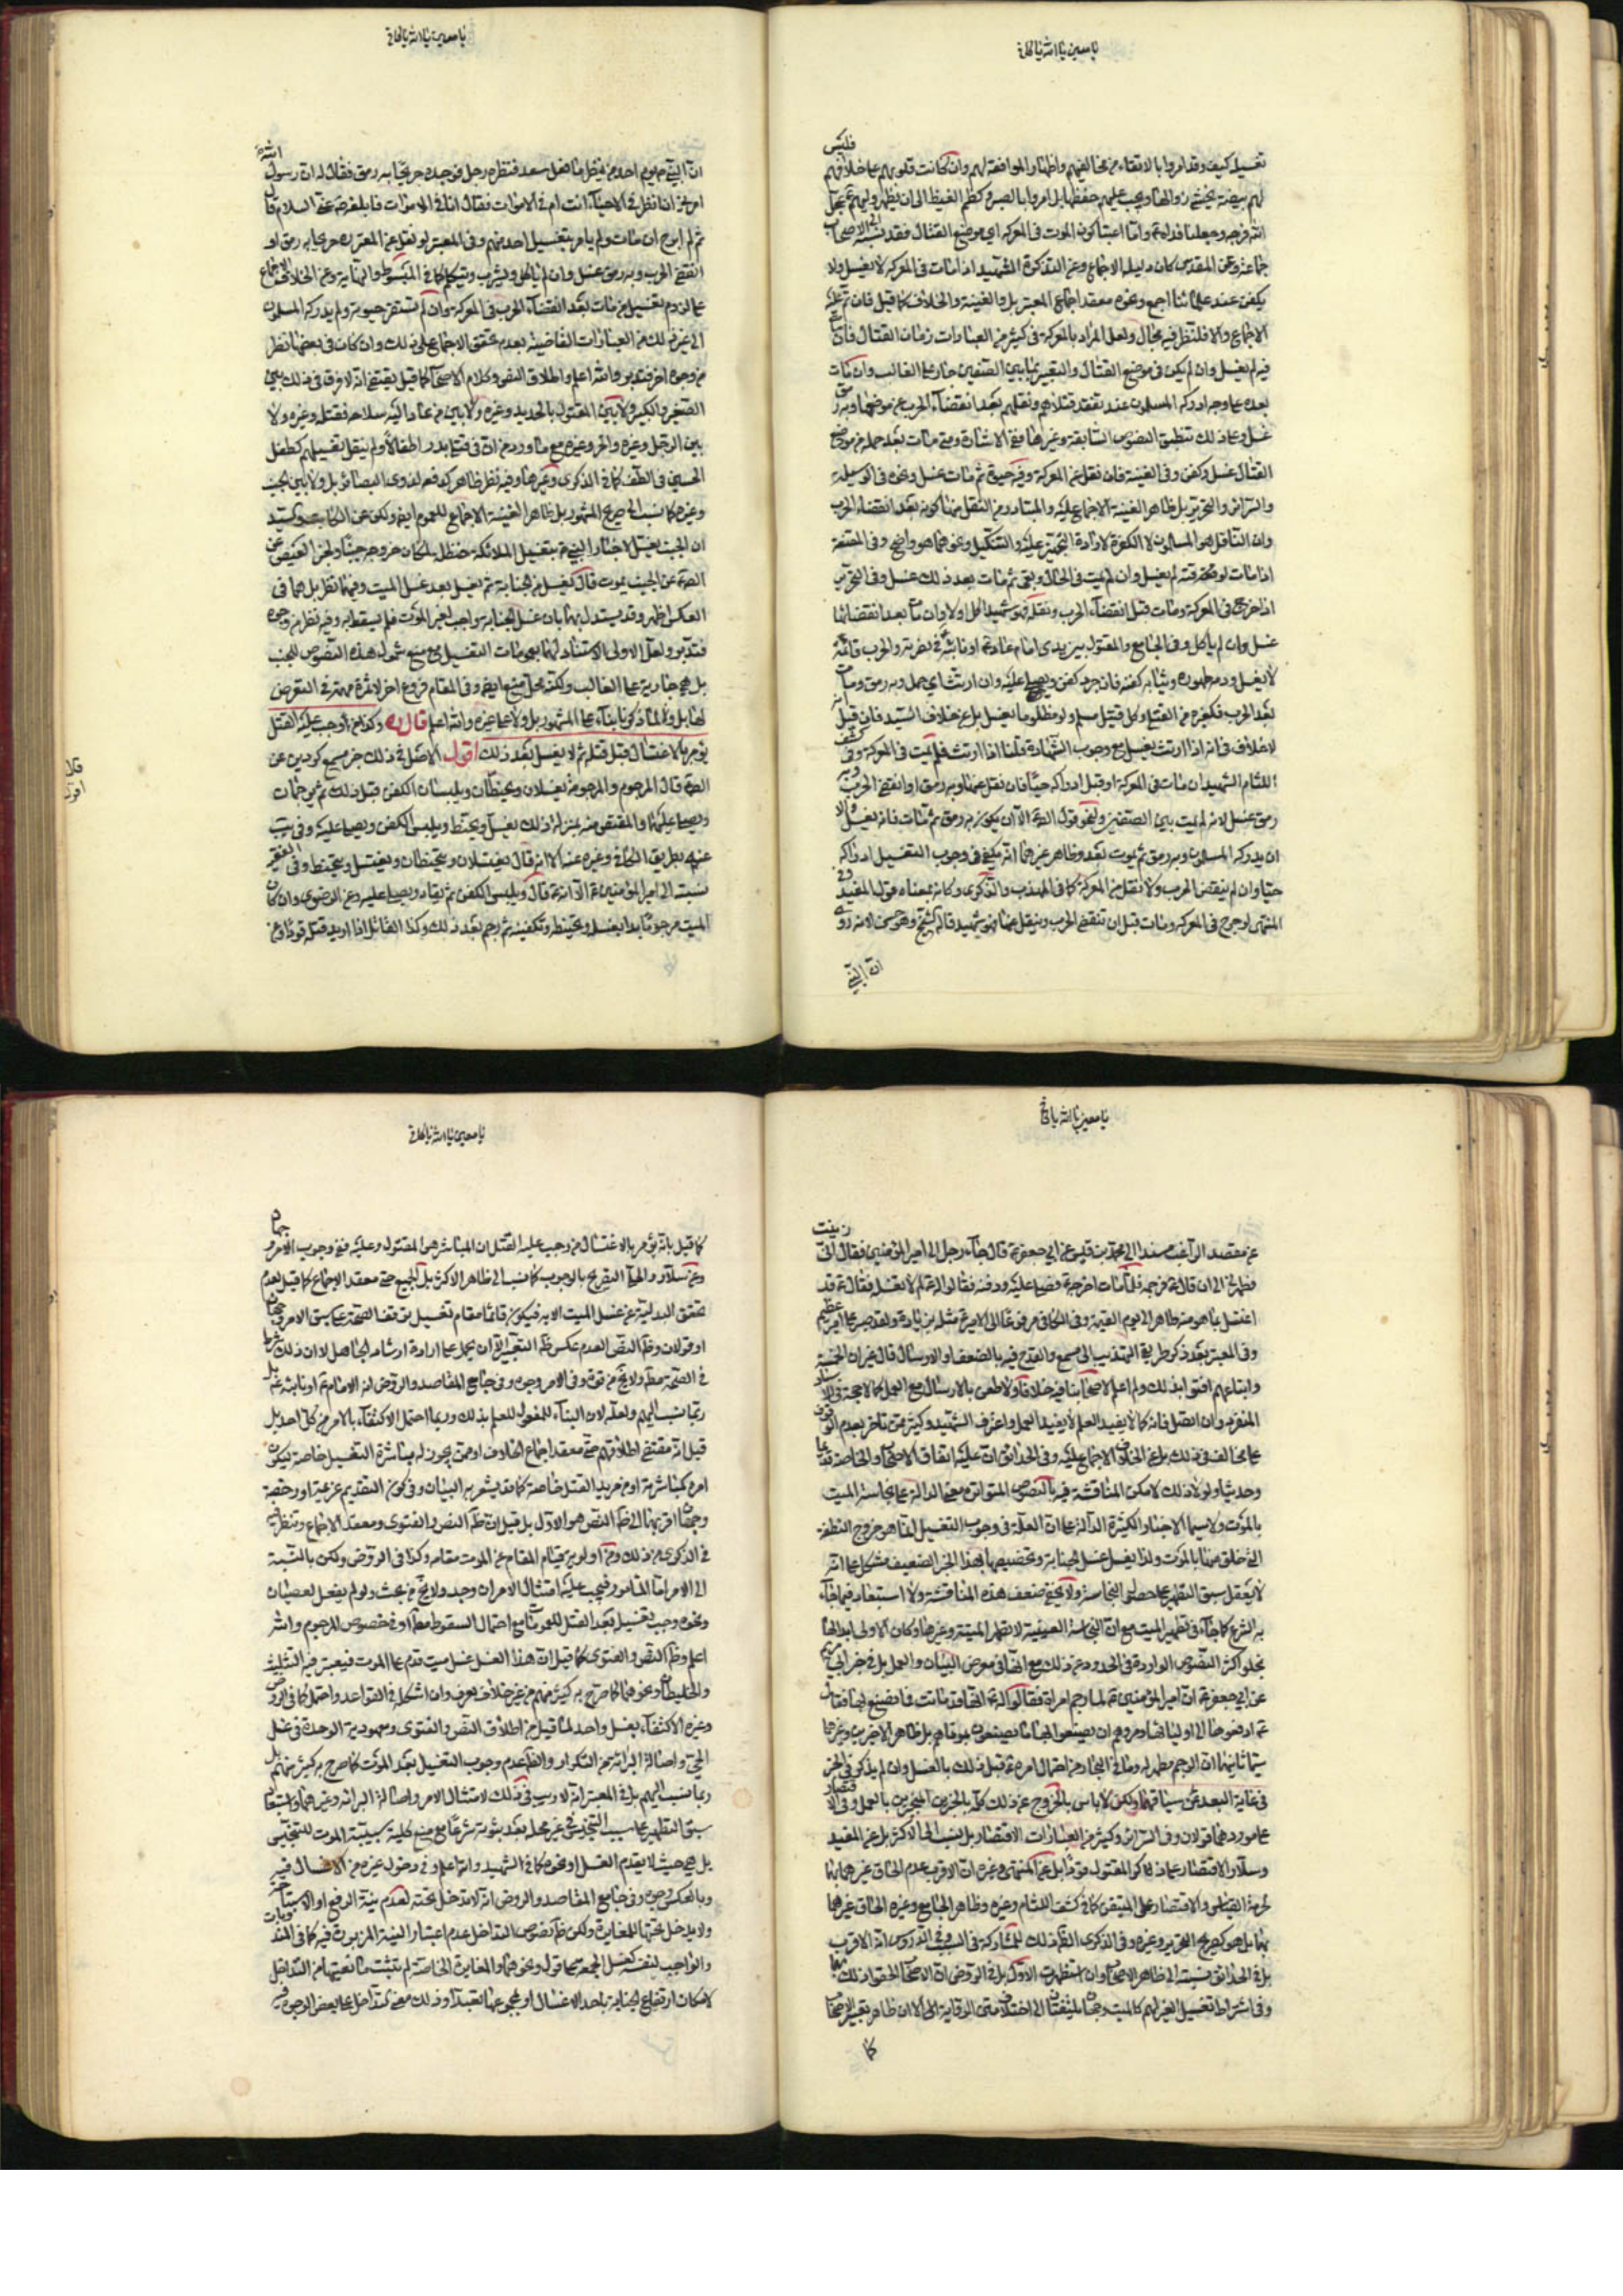 يا معين يا الله يا كافي
فليس
تغسيله كيف وقد امروا بالاتقاء من مخالفيهم واظهار الموافقة لهم وان كانت قلوبهم على خلافهم
لهم بيضة يخشى زوالها ويجب عليهم حفظها بل امروا بالصبر وكظم الغيظ الى ان يظهر وليهم عجل
الله فرجه وجعلنا فداه واما اعتبار كون الموت في المعركة اي موضع القتال فقد نسبه الى الاصحاب
جماعة وعن المقدس كان دليله الاجماع وعن التذكرة الشهيد اذا مات في المعركة لا يغسل ولا
يكفن عند علمائنا اجمع ونحوه معقد اجماع المعتبر بل والغنية والخلاف كما قيل فان تم عليه
الاجماع والا فللنظر فيه مجال ولعل المراد بالمعركة في كثير من العبارات زمان القتال فان مات
فيه لم يغسل وان لم يكن في موضع القتال والتعبير بما بين الصفين جار على الغالب وان مات
بعده على وجه ادركه المسلمون عند تفقد قتلاهم ونقلهم بعد انقضاء الحرب عن موضعها وبه رمق
غسل وعلى ذلك تنطبق النصوص السابقة وغيرها ففي الاشارة ومتى مات بعد حمله من موضع
القتال غسل وكفن وفي الغنية فان نقل عن المعركة وفيه حيوة ثم مات غسل ونحوه في الوسيلة
والسرائر والتحرير بل ظاهر الغنية الاجماع عليه والمتبادر من النقل منها كونه بعد انقضاء الحرب
وان الناقل هو المسلمون لا الكفرة لارادة التجهيز عليه والتنكيل ونحوهما هو واضح وفي المقنعة
اذا مات لوقته لم يغسل وان لم يمت في الحال وبقى ثم مات بعد ذلك غسل وفي التحرير
اذا جرح في المعركة ومات قبل انقضاء الحرب ونقله فهو شهيد اكل او لا وان مات بعد انقضائها
غسل وان لم ياكل وفي الجامع والمقتول بين يدى امام عادل او نائبه في نصرته والحرب قائمة
لا يغسل ودمه طهوره وثيابه كفنه فان جرد كفن ويصلى عليه وان ارتث اي حمل وبه رمق ومات
بعد الحرب فكغيره من القتلى وكل قتيل مسلم ولو مظلوما يغسل بل عن خلاف السيد فان قيل
لا خلاف في انه اذا ارتث يغسل مع وجوب الشهادة له قلنا اذا ارتث فلم يمت في المعركة وفي كشف
اللثام الشهيد ان مات في المعركة او قبل ادراكه حيا فان نقل عنها وبه رمق او انقضى الحرب وبه
رمق غسل لانه لم يمت بين الصفين ولنحو قول الصادق الا ان يكون به رمق ثم مات فانه يغسل والا
ان يدركه المسلمون وبه رمق ثم يموت بعد وظاهر غيرهما انه يكفي في وجوب التغسيل ادراكه
حيا وان لم ينقض الحرب ولا نقل من المعركة كما في المهذب والذكرى وكانه بمعناه قول المفيد وفي
المنتهى لو جرح في المعركة ومات قبل ان تنقضي الحرب وينقل عنها فهو شهيد قاله الشيخ وهو حسن لانه روى
ان النبي
يا معين يا الله يا كافي
ان النبي يوم احد من ينظر ما فعل سعد فنظره رجل فوجده جريحا به رمق فقال له ان رسول الله
امرني ان انظر في الاحياء انت ام في الاموات فقال انا في الاموات فابلغه عني السلام قال
ثم لم ابرح ان مات ولم يامر بتغسيل احد منهم وفي المعتبر لو نقل عن المعترك جريحا به رمق او
انقضى الحرب وبه رمق غسل وان لم ياكل ويشرب ويتكلم كما في المبسوط والنهاية وعن الخلاف الاجماع
على لزوم تغسيل من مات بعد انقضاء الحرب في المعركة وان لم تستقر حيوته ولم يدركه المسلمون
الى غير ذلك من العبارات القاضية بعدم تحقق الاجماع على ذلك وان كان في بعضها نظر
من وجوه اخر فتدبر والله اعلم واطلاق النص وكلام الاصحاب كما قيل يقتضى انه لا فرق في ذلك بين
الصغير والكبير ولا بين المقتول بالحديد وغيره ولا بين من عاد اليه سلاحه فقتله وغيره ولا
بين الرجل وغيره والحر وغيره مع ما ورد من ان في قتلى بدر اطفالا ولم ينقل تغسيلهم كطفل
الحسين في الطف كما في الذكرى وغيرها وفيه نظر ظاهر كدفعه لذوى البصائر بل ولا بين الجنب
وغيره كما نسب الى صريح المشهور بل ظاهر الغنية الاجماع للعموم ايضا ولكن عن الكاتب والسيد
ان الجنب يغسل لاخبار النبي بتغسيل الملائكة حنظلة لمكان خروجه جنبا ولخبر العيص عن
الصادق عن الجنب يموت قال يغسل من الجنابة ثم يغسل بعد غسل الميت وفيهما نظر بل هما في
العكس اظهر وقد يستدل لهما بان غسل الجنابة واجب لغير الموت فلم يسقط به وفيه نظر من وجوه
فتدبر ولعل الاولى الاستناد لهما بعمومات التغسيل مع منع شمول هذه النصوص للجنب
بل هي جارية على الغالب ولكنه محل منع ايضا وفي المقام فروع اخر لا ثمرة مهمة في التعرض
لها بل ولا لما ذكرنا بناء على المشهور بل ولا على غيره والله اعلم قال ره وكذا من وجب عليه القتل
يؤمر بالاغتسال قبل قتله ثم لا يغسل بعد ذلك اقول الاصل في ذلك خبر مسمع كردين عن
الصادق قال المرجوم والمرجومة يغسلان ويحنطان ويلبسان الكفن قبل ذلك ثم يرجمان
ويصلى عليهما والمقتص منه بمنزلة ذلك يغسل ويحنط ويلبس الكفن ويصلى عليه وفي
عنه بطريق الكافي وغيره عنه الا انه قال يغتسلان ويتحنطان ويغتسل ويتحنط وفي الفقيه
نسبته الى امير المؤمنين الا انه قال ويلبس الكفن ثم يقاد ويصلى عليه وعن الرضوى وان كان
الميت مرجوما بدا بغسله وتحنيطه وتكفينه ثم رجم بعد ذلك وكذا القاتل اذا اريد قتله قودا وعن
قال
اقول
يا معين يا الله يا كافي
زينت
عن مقصد الراغب مسندا الى محمد بن قيس عن ابي جعفر قال جاء رجل الى امير المؤمنين فقال اني
فطهرني الى ان قال ثم رجمه فلما مات اخرجه فصلى عليه ودفنه فقالوا له لم لا تغسله فقال قد
اغتسل بما هو منه طاهر الى يوم القيمة وفي الكافي مرفوعا الى الامير مثله بزيادة ولقد صبر على امر عظيم
وفي المعتبر بعد ذكر طريق التهذيب الى مسمع والقدح فيه بالضعف او الارسال قال غير ان الخمسة
واتباعهم افتوا بذلك ولم اعلم لاصحابنا فيه خلافا ولا طعن بالارسال مع العمل كما لا حجة في الاسناد
المنفرد وان اتصل فانه كما لا يفيد العلم لا يفيد العمل واعترف الشهيد وكثير ممن تاخر بعدم الوقوف
على مخالف في ذلك بل عن الخلاف الاجماع عليه وفي الحدائق ان عليه اتفاق الاصحاب والخاصة قديما
وحديثا ولولا ذلك لامكن المناقشة فيه بالنصوص المتواترة معنى الدالة على نجاسة الميت
بالموت ولا سيما الاخبار الكثيرة الدالة على ان العلة في وجوب التغسيل انما هو خروج النطفة
التي خلق منها بالموت ولذا يغسل غسل الجنابة وتخصيصها بهذا الخبر الضعيف مشكل على انه
لا يعقل سبق التطهير على حصول النجاسة ولا يخفى ضعف هذه المناقشة ولا استبعاد فيما جاء
به الشرع كما جاء في تطهير الميت مع ان النجاسة العينية لا تطهر الميتة وغيرها وكان الاولى ابدالها
بخلو اكثر النصوص الواردة في الحدود عن ذلك مع انها في معرض البيان والعمل بل في خبر ابي مريم
عن ابي جعفر ان امير المؤمنين لما رجم امراة فقالوا له انها قد ماتت فما نصنع بها فقال
ادفعوها الى اوليائها ومروهم ان يصنعوا بها ما يصنعون بموتاهم بل ظاهر الاخيرين وغيرهما
سيما ثانيهما ان الرجم مطهر له وما في البحار من احتمال امره قبل ذلك بالغسل وان لم يذكر في الخبر
في غاية البعد عن سياقهما ولكن لا باس بالخروج عن ذلك كله بالخبرين المنجبرين بالعمل وفي الاقتصار
على موردهما قولان وفي السرائر وكثير من العبارات الاقتصار بل نسب الى الاكثر بل عن المفيد
وسلار الاقتصار على ذكر المقتول قودا بل عن المنتهى وغيره ان الاقرب عدم الحاق غيرهما بهما
لحرمة القياس والاقتصار على المتيقن كما في كشف اللثام وغيره وظاهر الجامع وغيره الحاق غيرهما
بهما بل هو كصريح التحرير وغيره وفي الذكرى الظاهر ذلك للمشاركة في السبب وفي الدروس انه الاقرب
بل في الحدائق نسبته الى ظاهر الاصحاب وان استظهرت الاول بل في الروض ان الاصحاب الحقوا ذلك بهما
وفي اشتراط تغسيل الغير لهم كالميت وجهان يلتفتان الى اختلاف متن الرواية الا ان ظاهر تعبير الاصحاب
كما
يا معين يا الله يا كافي
كما قيل بانه يؤمر بالاغتسال من وجب عليه القتل ان المباشر هو المقتول وعليه ففي وجوب الامر
وعن سلار والمهذب التصريح بالوجوب كما نسب الى ظاهر الاكثر بل الجميع حتى معقد الاجماع كما قيل لعدم
تحقق البدلية عن غسل الميت الا به فيكون قائما مقام تغسيل يوقف الصحة على سبق الامر وجهان
او قولان وظاهر النص العدم عكس ظاهر التعبير الا ان يحمل على ارادة ارشاد الجاهل لا ان ذلك شرطا
في الصحة معه ولا يخلو من قوة وفي الامر وجوه وفي جامع المقاصد والروض انه الامام او نائبه بل
ربما نسب اليهم ولعله لان البناء للمفعول للعلم بذلك وربما احتمل الاكتفاء بالامر من كل احد بل
قيل انه مقتضى اطلاقهم حتى معقد اجماع الخلاف او ممن يجوز له مباشرة التغسيل خاصة ليكون
امره كمباشرته او من مريد القتل خاصة كما قد يشعر به البيان وفي كون التقديم عزيمة او رخصة
وجهان اقربهما الى ظاهر النص هو الاول بل قيل ان ظاهر النص والفتوى ومعقد الاجماع وتنظر فيه
في الذكرى من ذلك ومن اولوية قيام المقام عن الموت مقامه وكذا في الروض ولكن بالنسبة
الى الامر اما المامور فيجب عليه امتثال الامر ان وجد ولا يخلو من بحث ولو لم يفعل لعصيان
ونحوه وجب تغسيله بعد القتل للعمومات مع احتمال السقوط معه او في خصوص المرجوم والله
اعلم وظاهر النص والفتوى كما قيل ان هذا الغسل غسل ميت قدم على الموت فيعتبر فيه التثليث
والخليطان ونحوهما كما صرح به كثير منهم من غير خلاف يعرف وان اشكله في القواعد واحتمل كما في الروض
وغيره الاكتفاء بغسل واحد لما قيل من اطلاق النص والفتوى ومعهودية الوحدة في غسل
الحي واصالة البرائة من التكرار والظاهر عدم وجوب التغسيل بعد الموت كما صرح به كثير منهم بل
ربما نسب اليهم بل في المعتبر انه لا ريب في ذلك لامتثال الامر واصالة البرائة وغيرهما ولا استبعاد
سبق التطهير على سبب التنجيس في غير محله بعد ثبوته شرعا مع منع كلية سببية الموت للتنجيس
بل هي حيث لا يقدم الغسل او نحوه كما في الشهيد والله اعلم وفي دخول غيره من الاغسال فيه
وبالعكس وجوه وفي جامع المقاصد والروض انه لا تدخل تحته لعدم نية الرفع او الاستباحة
ولا يدخل تحتها للمغايرة ولكن ظاهر نصوص التداخل عدم اعتبار النية المزبورة فيه كما في المندوبات
والواجب لنفسه كغسل الجمعة على قول ونحوهما والمغايرة الخاصة لم تثبت مانعيتها من التداخل
لامكان ارتفاع الجنابة باحد الاغسال او بمجموعها تعبدا وذلك معنى تداخل على بعض الوجوه فيه